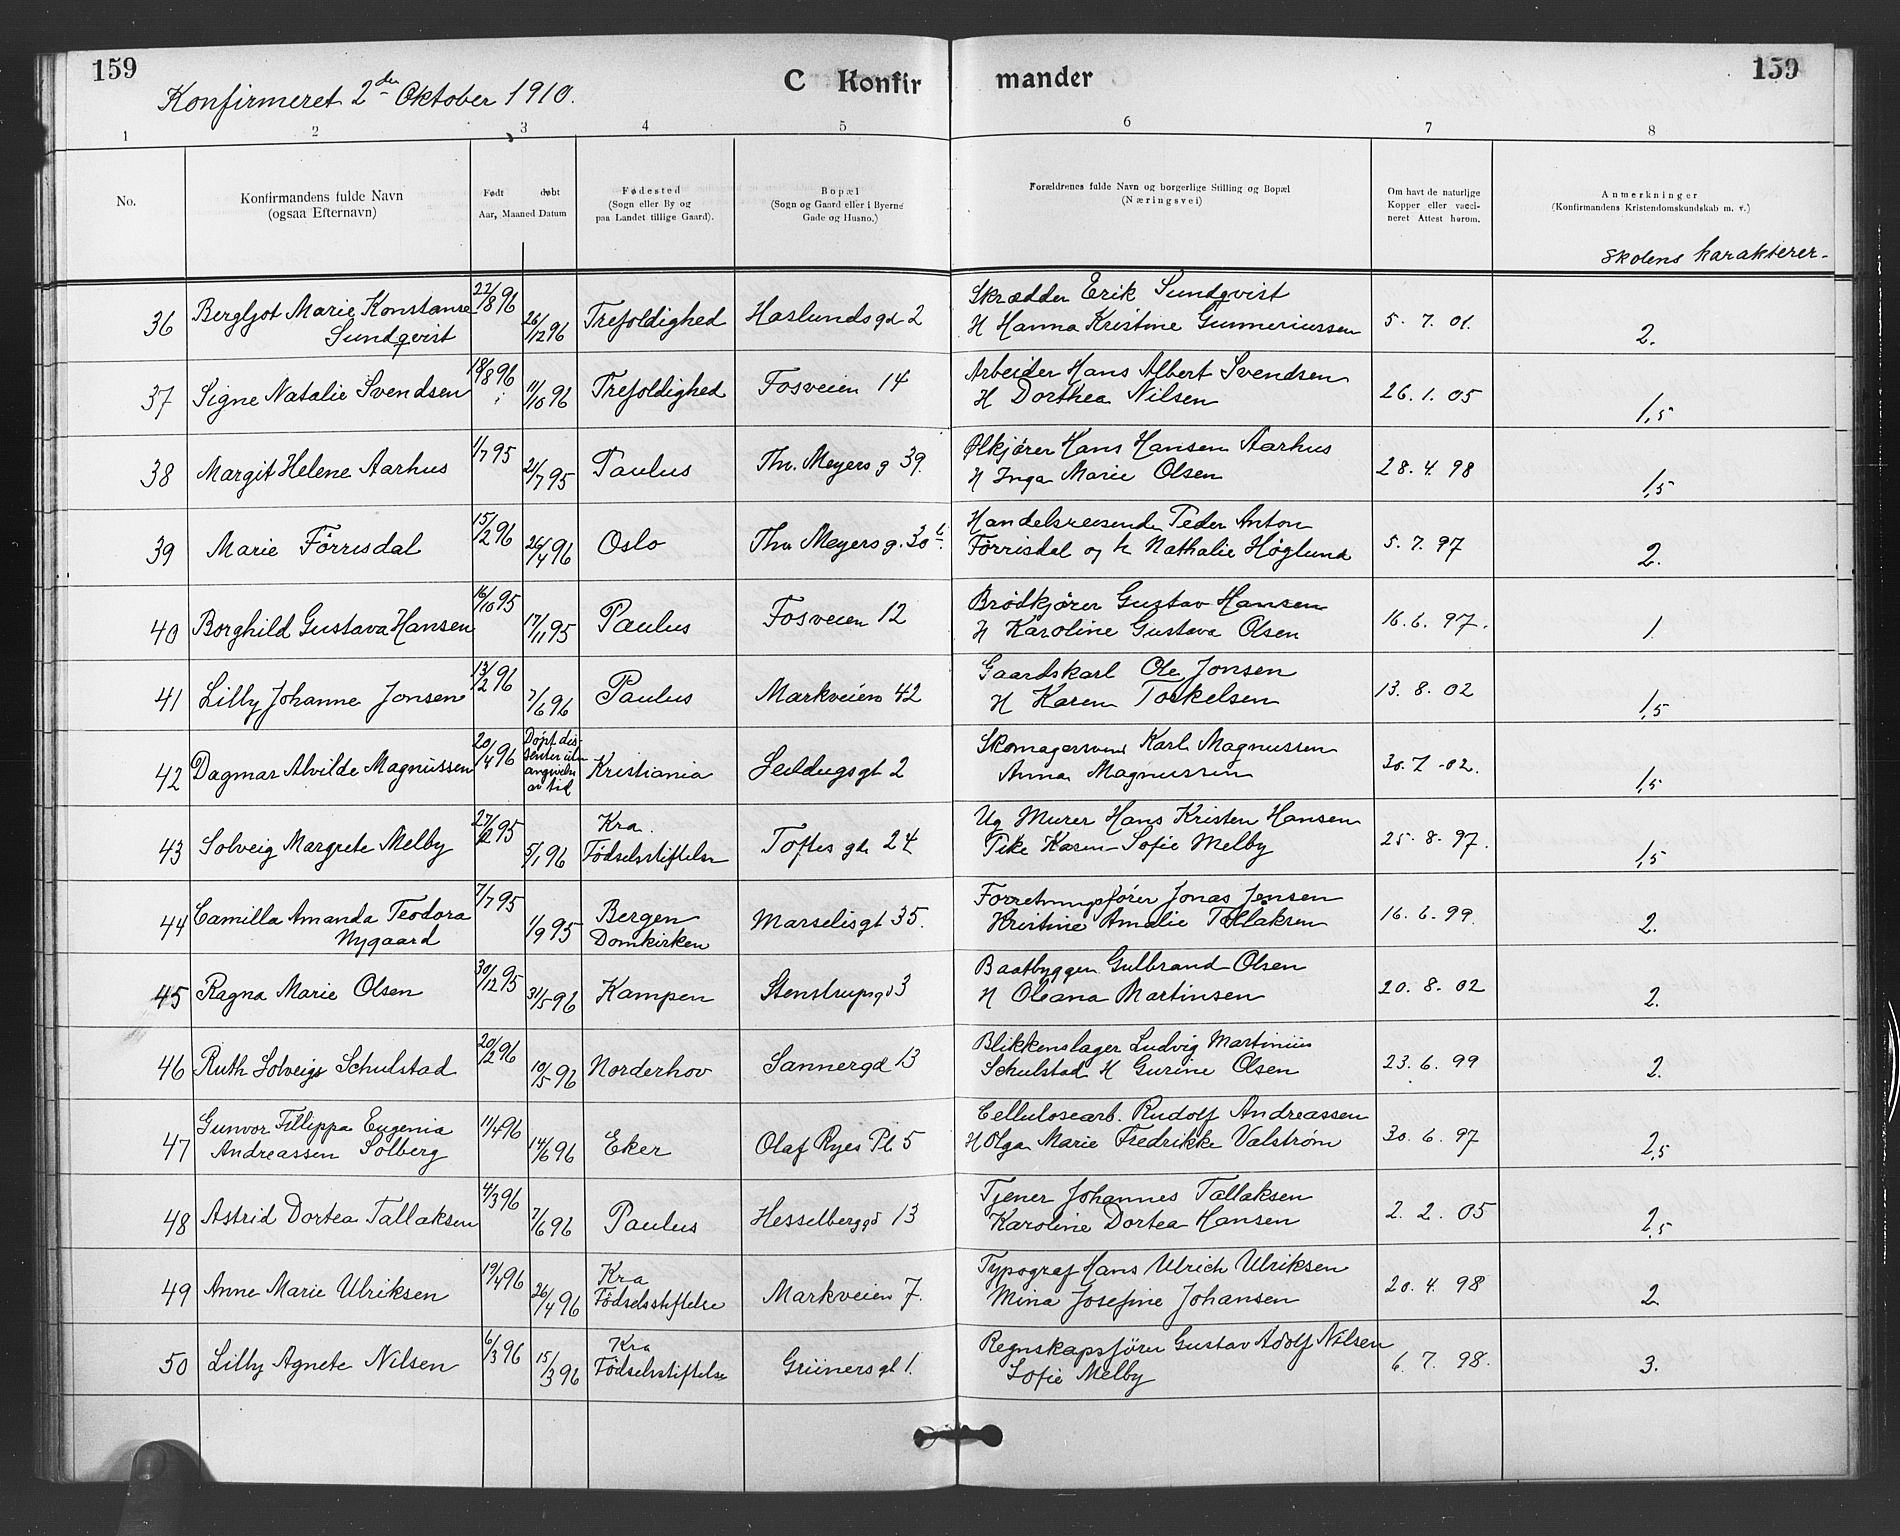 159
Konfirmeret 2den Oktober 1910.
C Konfirmander
159
1 2 3 4 5 6 7 8
No.
Konfirmandens fulde Navn
(ogsaa Efternavn)
Født døbt
Aar, Maaned Datum
Fødested
(Sogn eller By og
paa Landet tillige Gaard).
Bopæl
(Sogn og Gaard eller i Byerne
Gade og Husno.)
Forældrenes fulde Navn og borgerlige Stilling og Bopæl
(Næringsvei)
Om havt de naturlige
Kopper eller vacci-
neret Attest herom.
Anmerkninger
(Konfirmandens Kristendomskundskab m. v.)
Skolens karakterer.
36 Bergljot Marie Konstanse Sundqvist 22/8 96 26/12 96 Trefoldighed Haslunds gd 2 Skrædder Erik Sundqvist
H Hanna Kristine Gunneriussen 5. 7. 01. 2.
37 Signe Natalie Svendsen 18/8 96 11/10 96 Trefoldighed Fosveien 14 Arbeider Hans Albert Svendsen
H Dorthea Nilsen 26. 1. 05 1,5
38 Margit Helene Aarhus 1/7 95 21/7 95 Paulus Thv. Meyers g 39. Ølkjører Hans Hansen Aarhus
H Inga Marie Olsen 28. 4. 98 1,5
39 Marie Förrisdal 15/2 96 26/4 96 Oslo Thv Meyers g. 30 b. Handelsreisende Peder Anton
Førrisdal og h Nathalie Høglund 5. 7. 97 2.
40 Borghild Gustava Hansen 16/10 95 17/11 95 Paulus Fosveien 12 Brödkjörer Gustav Hansen
H Karoline Gustava Olsen 16. 6. 97. 1.
41 Lilly Johanne Jonsen 13/2 96 7/6 96 Paulus Markveien 42 Gaardskarl Ole Jonsen
H Karen Torkelsen 13. 8. 02 1,5
42 Dagmar Alvilde Magnüssen 20/4 96 Døpt dis-
senter uten
angivelse
av tid Kristiania Seildugsgt 2 Skomagersvend Karl Magnussen
Anna Magnussen 30. 7. 02. 1,5
43 Solveig Margrete Melby 27/12 95 5/1 96 Kra.
Födselsstiftelse Toftes gt 24 Ug Murer Hans Kristen Hansen
Pike Karen Sofie Melby 25. 8. 97. 1,5
44 Camilla Amanda Teodora
Nygaard 7/7 95 1/9 95 Bergen
Domkirken Marselisgt 35. Forretningsfører Jonas Jensen
Kristine Amalie Tallaksen 16. 6. 99. 2.
45 Ragna Marie Olsen 30/12 95 31/5 96 Kampen Stenstrupsgd 3 Baatbygger Gulbrand Olsen
H Oleana Martinsen 20. 8. 02 2.
46 Ruth Solveig Schulstad 20/2 96 10/5 96 Norderhov Sannergd 13 Blikkenslager Ludvig Martinius
Schulstad H Gurine Olsen 23. 6. 99 2.
47 Gunvor Fillippa Eugenia
Andreassen Solberg 11/4 96 14/6 96 Eker Olaf Ryes Pl 5 Cellulosearb. Rudolf Andreassen
H Olga Marie Fredrikke Valstrøm 30. 6. 97 2,5
48 Astrid Dortea Tallaksen 4/3 96 7/6 96 Paulus Hesselberggd 13 Tjener Johannes Tallaksen
Karoline Dortea Hansen 2. 2. 05 2,5
49 Anne Marie Ulriksen 19/4 96 26/4 96 Kra
Födselsstiftelse Markveien 7. Typograf Hans Ulrich Ulriksen
Mina Josefine Johansen 20. 4. 98 2
50 Lilly Agnete Nilsen 6/3 96 15/3 96 Kra
Födselsstiftelse Grüners gt 1. Regnskapsfører Gustav Adolf Nilsen
Sofie Melby 6. 7. 98. 3.